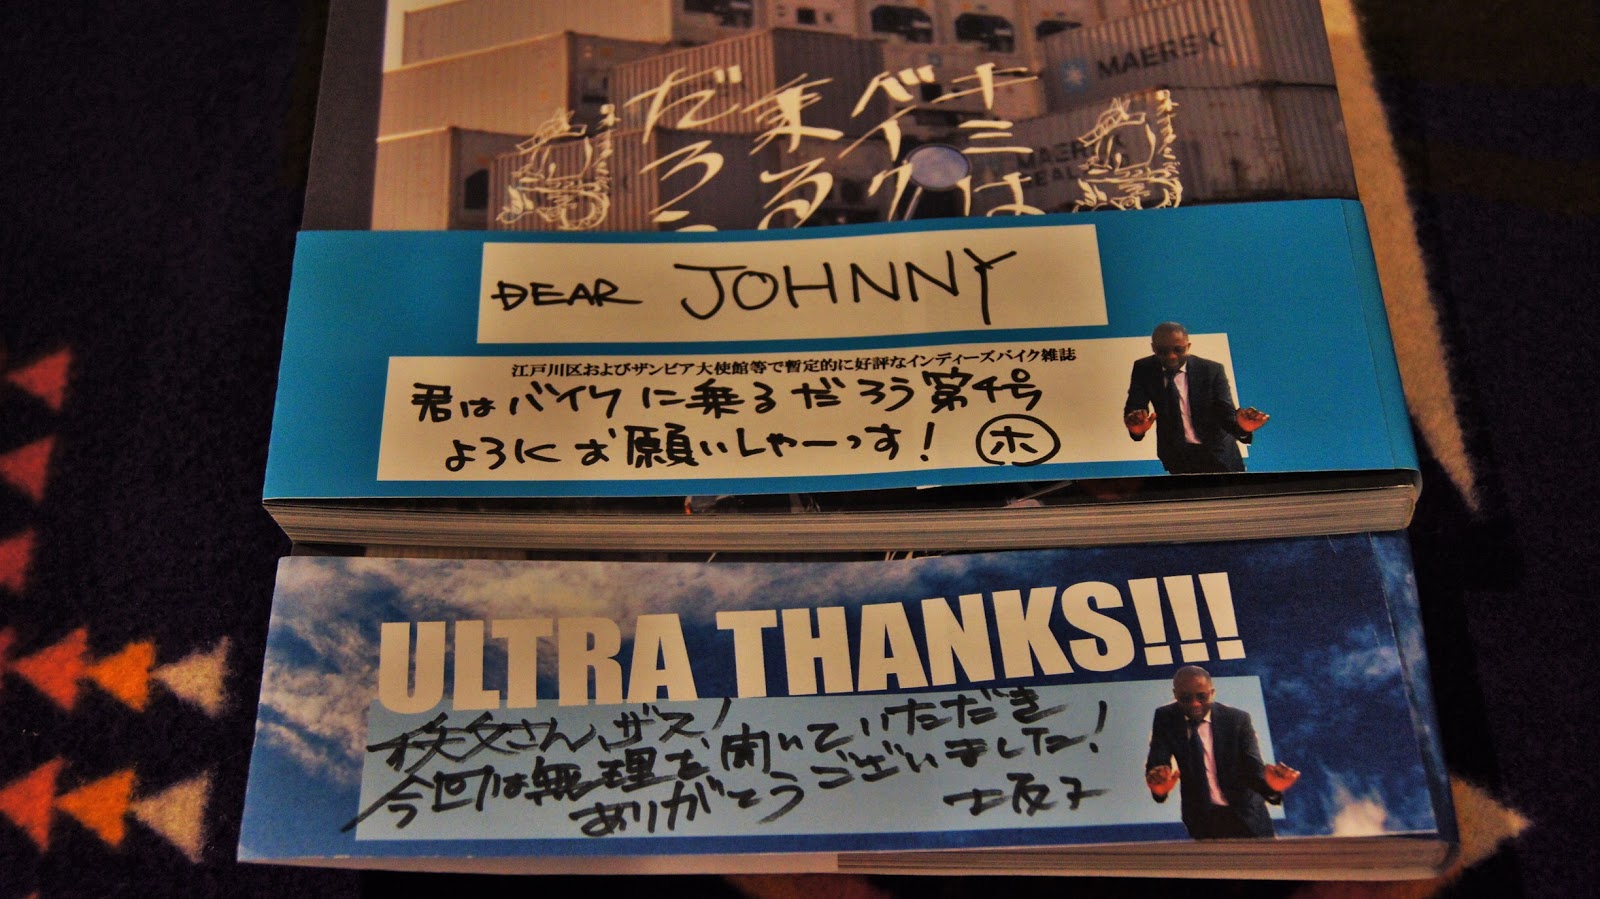 MAERSK
MAERSK
SEAL
キミは
バイク
乗る
だろう
DEAR JOHNNY
江戸川区およびザンビア大使館等で暫定的に好評なインディーズバイク雑誌
君はバイクに乗るだろう第4号
よろにくお願いしゃーっす! ホ
ULTRA THANKS!!!
秩父さん、ザス!
今回は無理を聞いていただき
ありがとうございました!